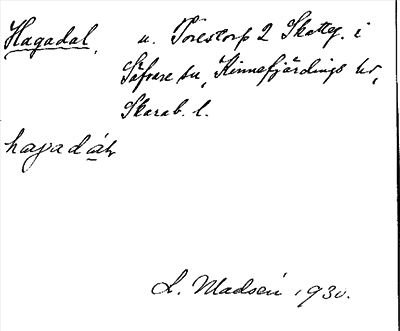 Hagadal, u. Torestorp 2 Skatteg. i
Säfvare sn, Kinnefjärdings hd,
Skarab. l.
hagadɑ̀l
L. Madsén 1930.